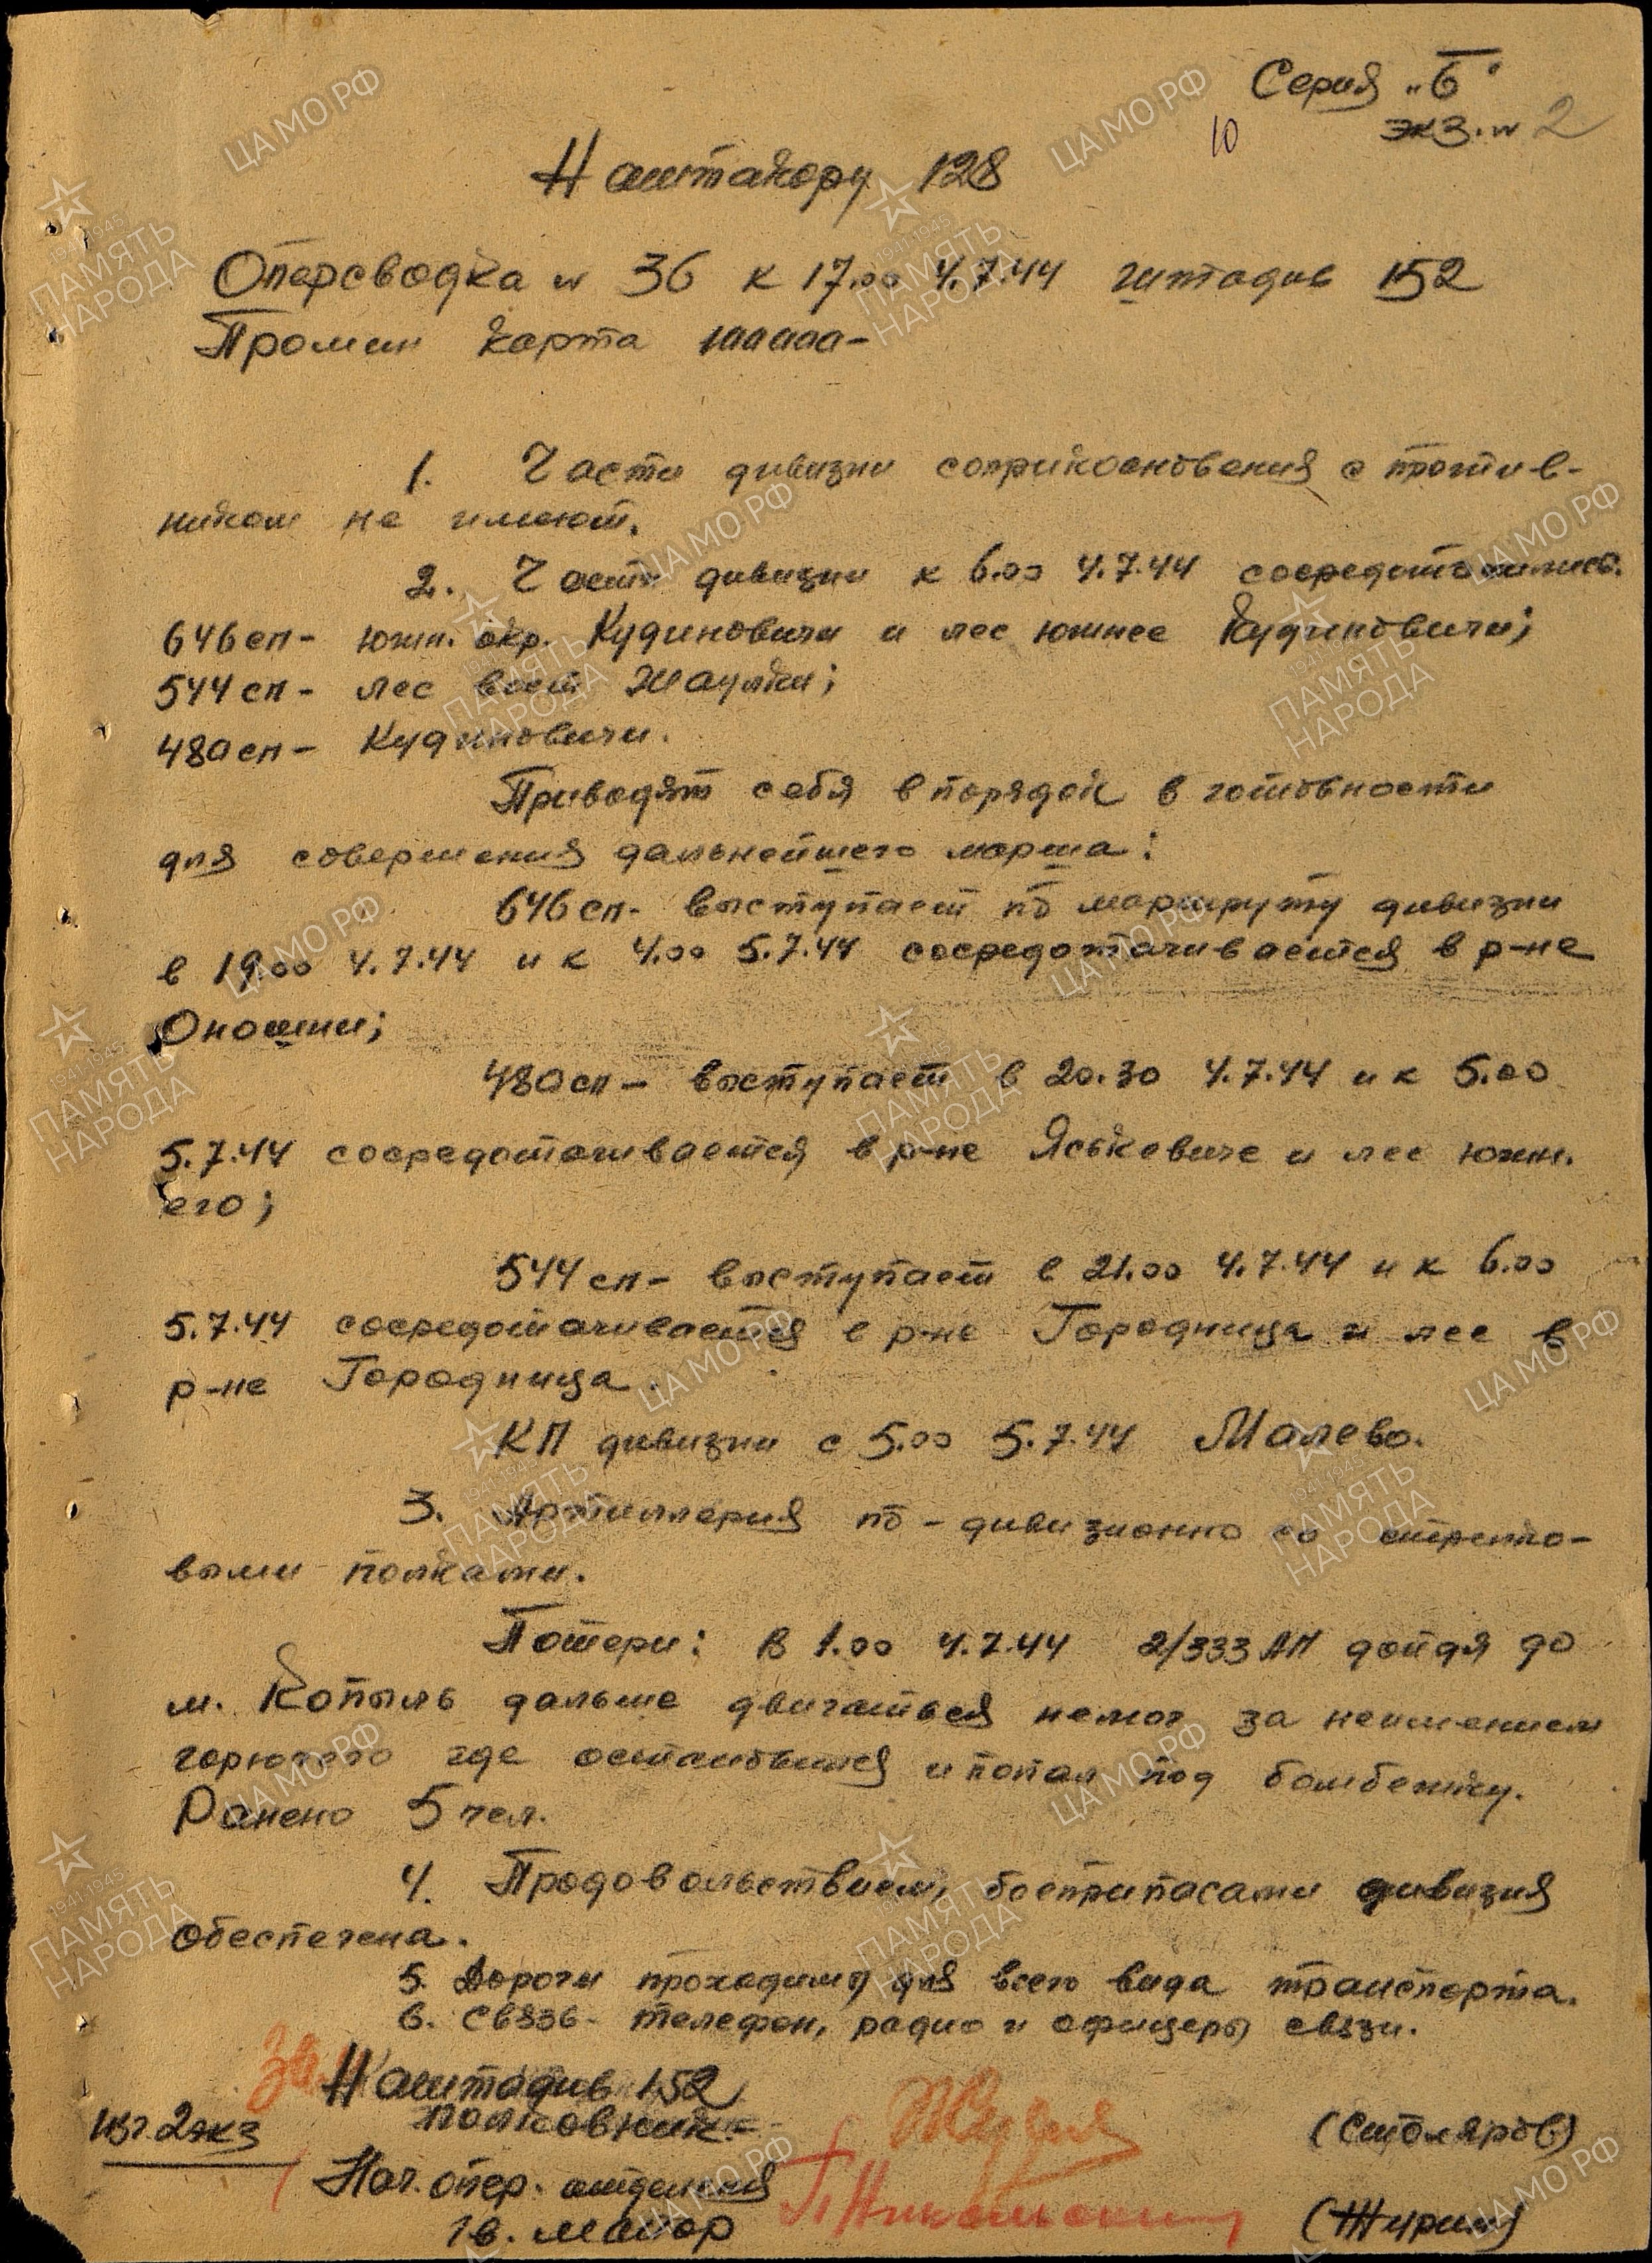 Серия „Б"
экз. № 2
10
Наштакору 128
Оперсводка № 36 к 17.00 4.7.44 штадив 152
Промин карта 100000-
1. Части дивизии соприкосновения с против-
ником не имеют.
2. Части дивизии к 6.00 4.7.44 сосредоточились.
646сп- южн. окр. Кудиновичи и лес южнее Кудиновичи;
544сп- лес вост Жаулки;
480сп- Кудиновичи.
Приводят себя в порядок в готовности
для совершения дальнейшего марша:
646сп- выступает по маршруту дивизии
в 19.00 4.7.44 и к 4.00 5.7.44 сосредотачивается в р-не
Оношки;
480сп- выступает в 20.30 4.7.44 и к 5.00
5.7.44 сосредотачивается в р-не Яськевиче и лес южн.
его;
544сп- выступает в 21.00 4.7.44 и к 6.00
5.7.44 сосредотачивается в р-не Городница и лес в
р-не Городница.
КП дивизии с 5.00 5.7.44 Малево.
3. Артиллерия по-дивизионно со стрелко-
выми полками.
Потери: В 1.00 4.7.44 2/333 АП дойдя до
м. Копыль дальше двигаться немог за неимением
горючего где остановился и попал под бомбежку.
Ранено 5 чел.
4. Продовольствием, боеприпасами дивизия
обеспечена.
5. Дороги проходимы для всего вида транспорта.
6. Связь- телефон, радио и офицеры связи.
Зам Наштадив 152
полковник- (Столяров)
Изг. 2экз
Нач. опер. отделения
гв. майор (Журин)
ЦАМО РФ
1941 1945
ПАМЯТЬ
НАРОДА